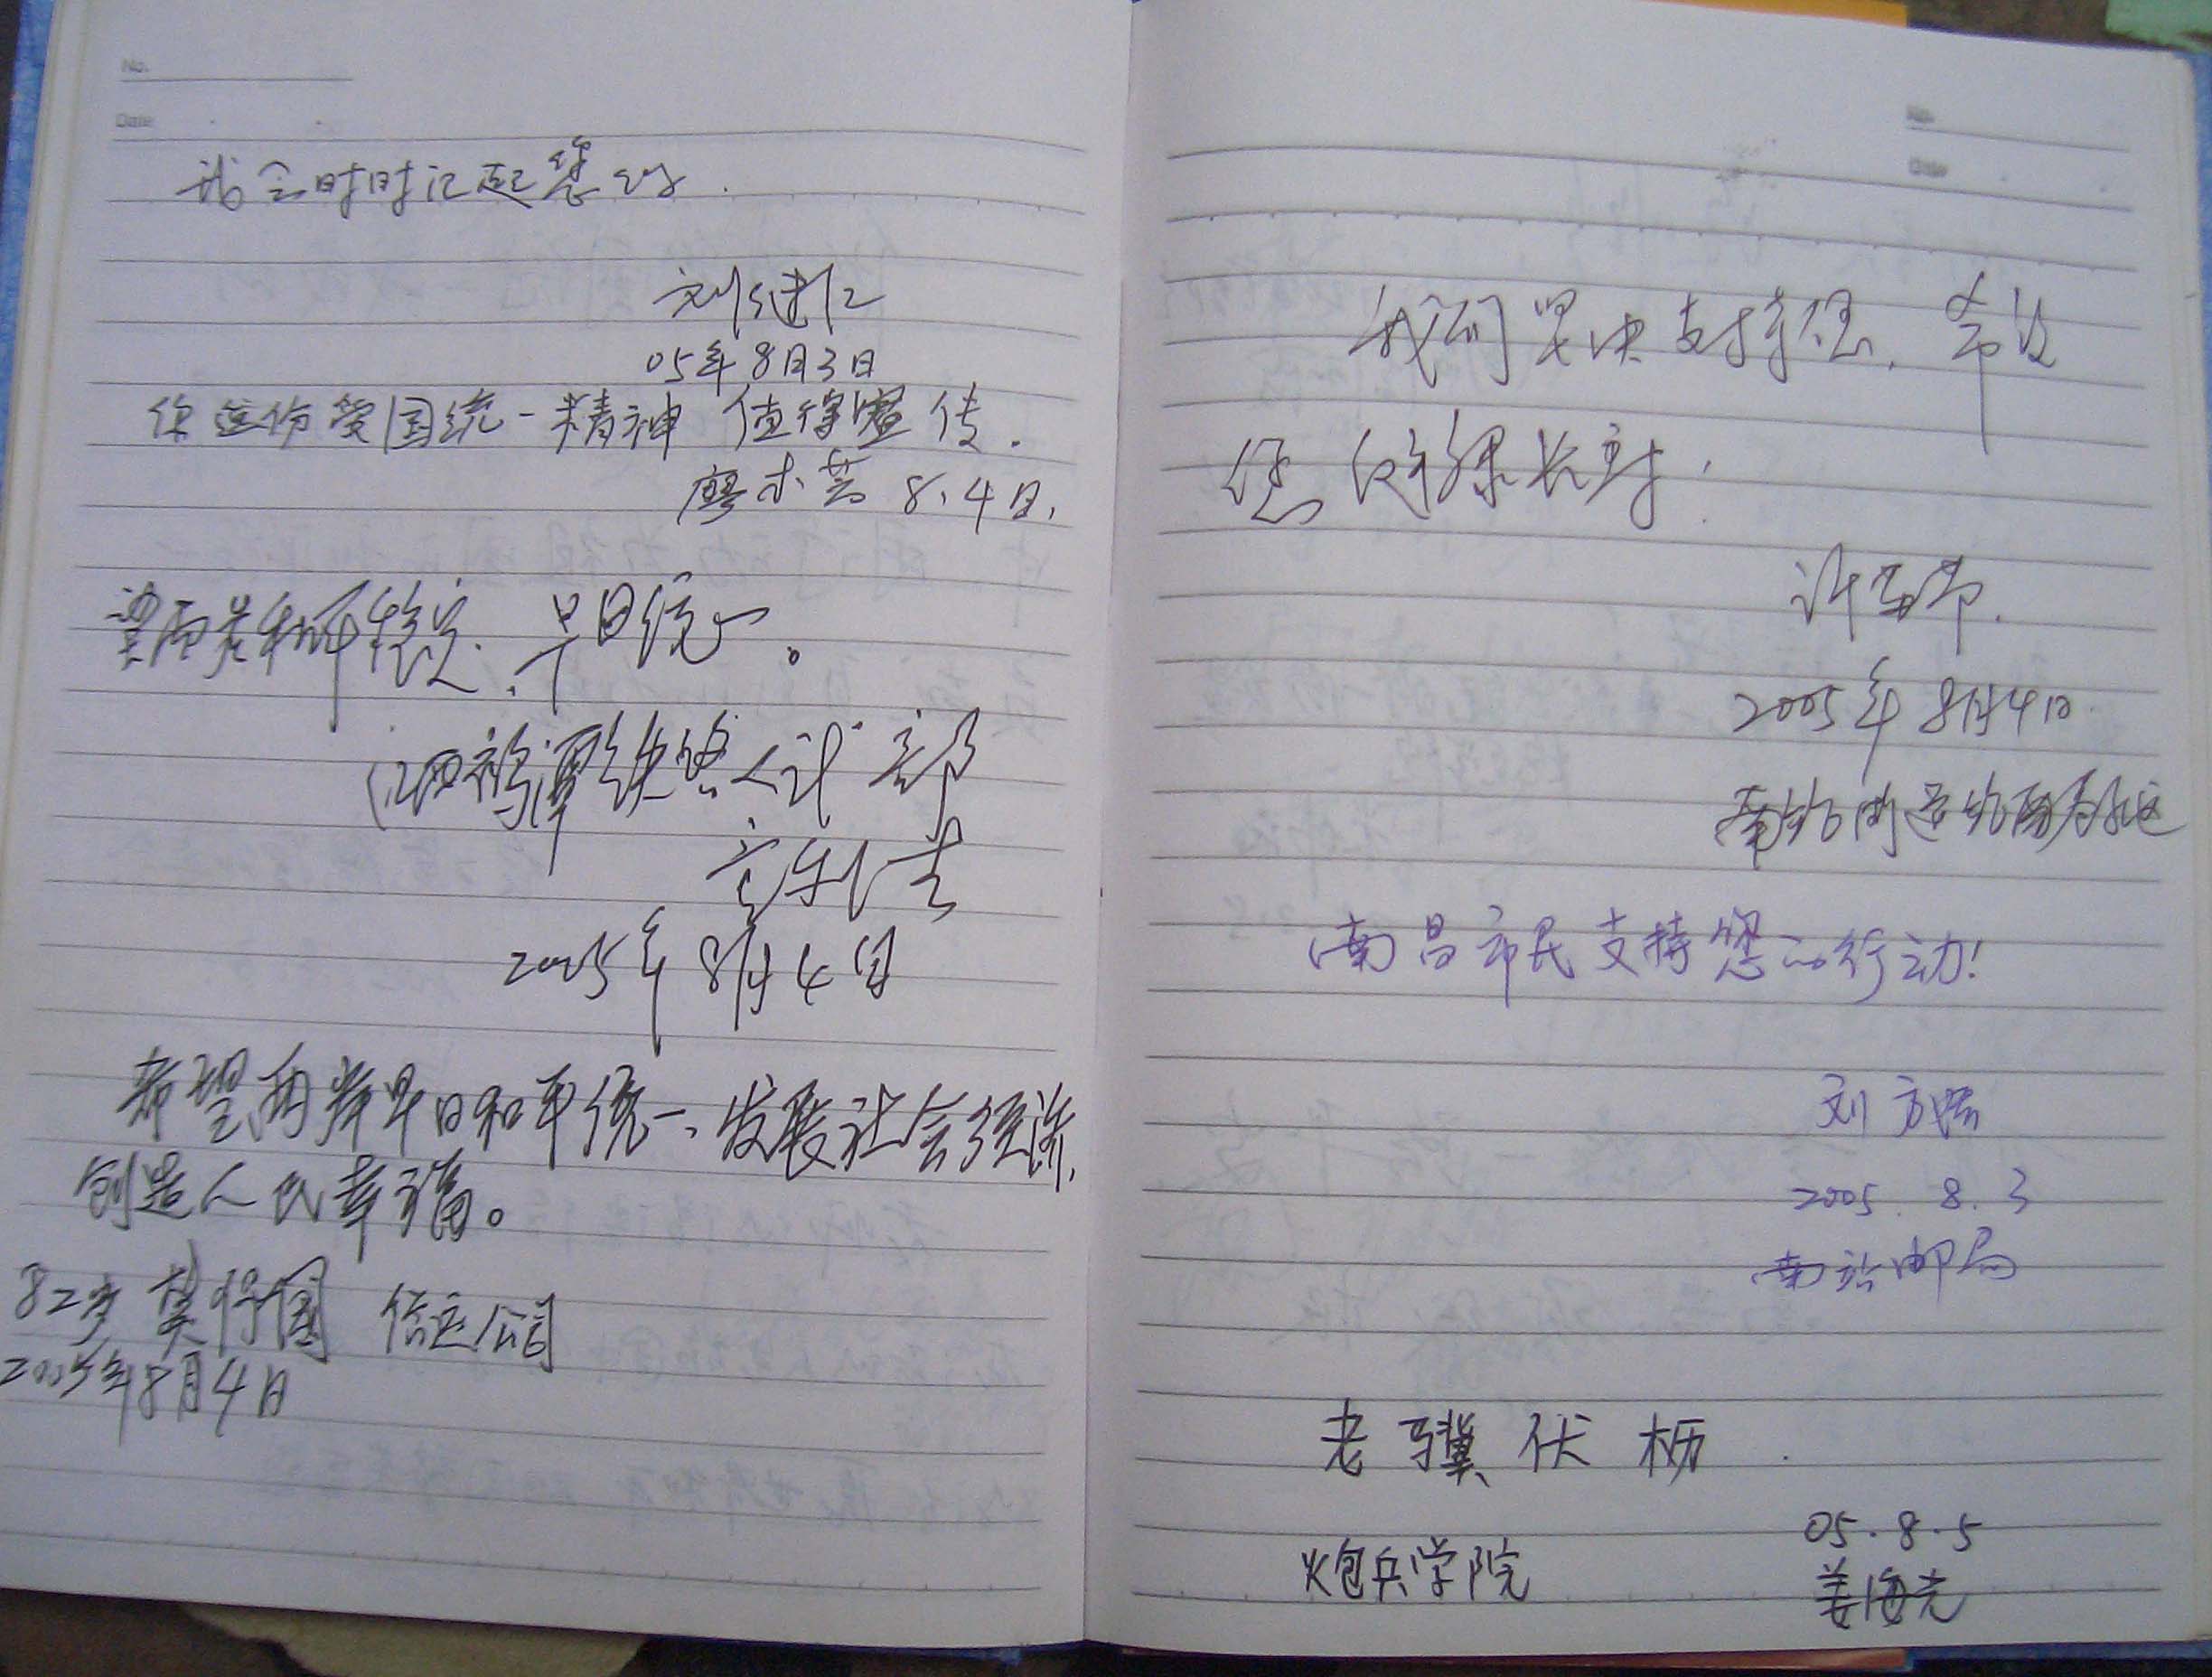 No.
Date
我会时时记起您的.
刘建仁
05年8月3日
你这份爱国统一精神 值得宣传.
廖木芸 8、4日、
望两岸和平稳定、早日统一。
江西鹰潭铁路人武部
2005年8月4日
希望两岸早日和平统一、发展社会经济、
创造人民幸福。
82岁 莫 国 信 公司
2005年8月4日
No.
Date
我们坚决支持您、希望
您 健康长寿!
许
2005年8月4日
南
南昌市民支持您的行动!
刘方
2005.8.3
南站邮局
老骥伏枥.
05.8.5
炮兵学院
姜海光